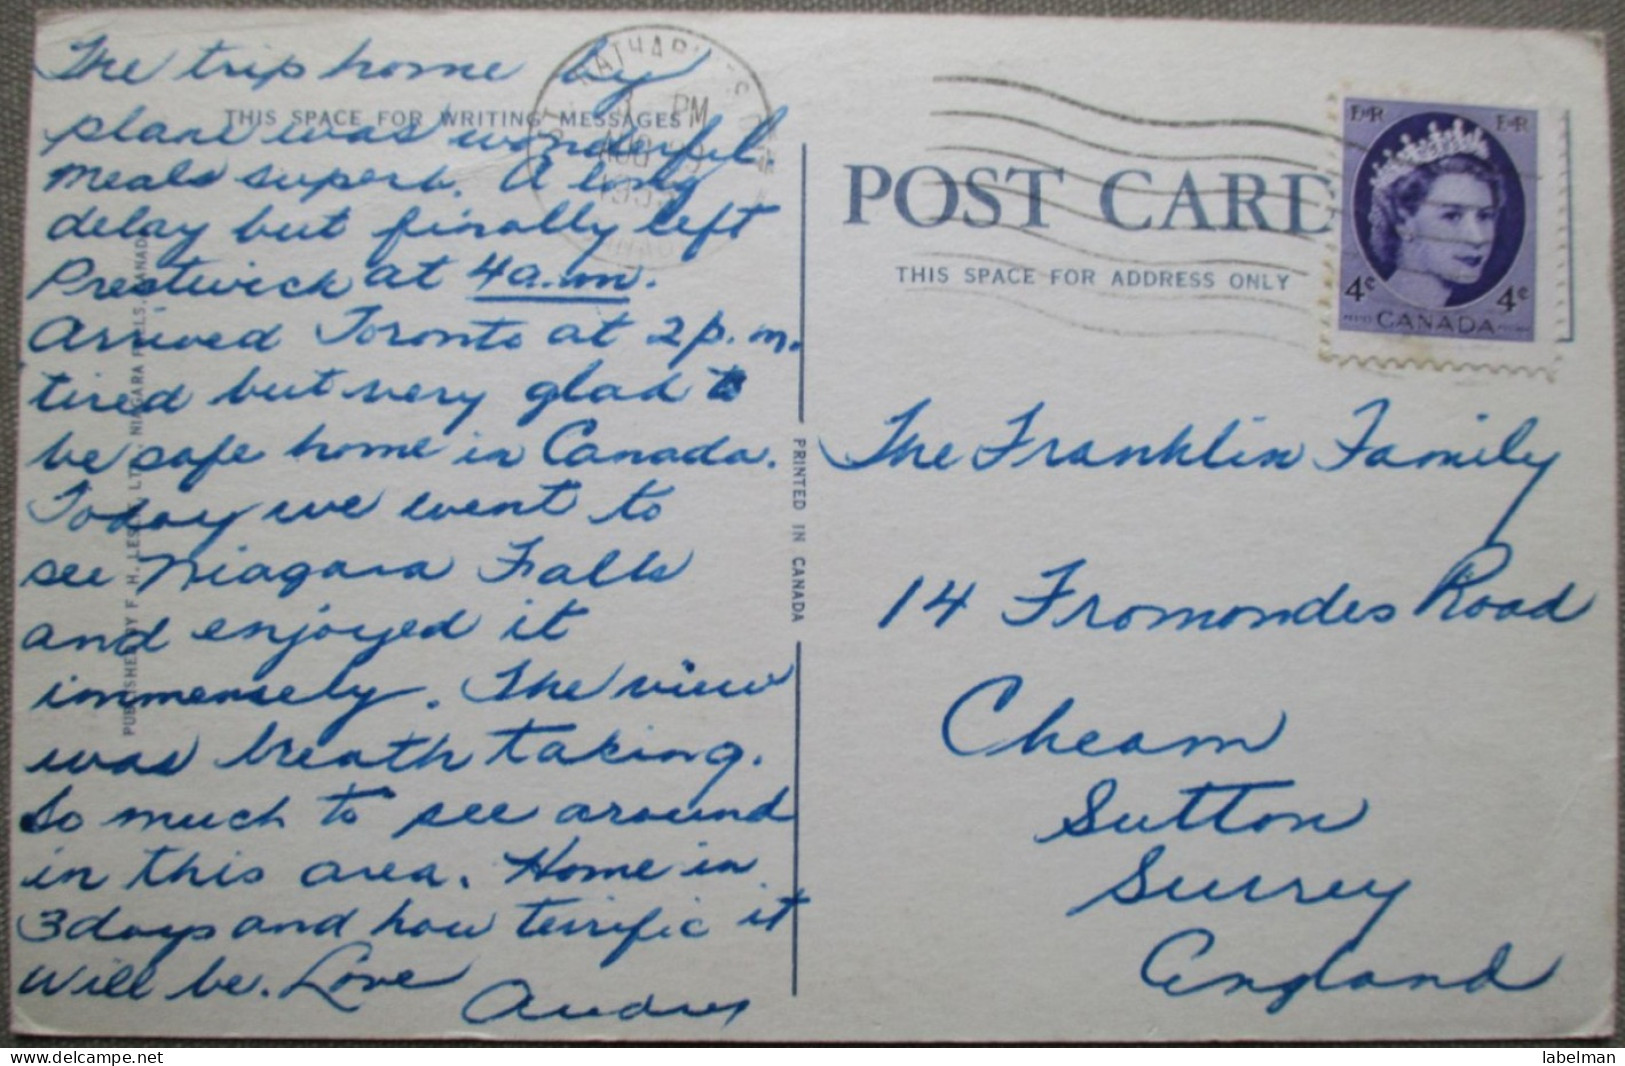 The trip home by
THIS SPACE FOR WRITING MESSAGES
plane was wonderful
meals superb. A long
delay but finally left
Prestwick at 4 a.m.
Arrived Toronto at 2 p.m.
tired but very glad to
be safe home in Canada.
Today we went to
see Niagara Falls
and enjoyed it
immensely. The view
was breath taking.
So much to see around
in this area. Home in
3 days and how terrific it
will be. Love
Audrey
PUBLISHED BY F. H. LESLIE, LTD., NIAGARA FALLS, CANADA
PRINTED IN CANADA
PM
AUG
POST CARD
THIS SPACE FOR ADDRESS ONLY
E II R E II R
4¢ 4¢
POSTES CANADA POSTAGE
The Franklin Family
14 Fromondes Road
Cheam
Sutton
Surrey
England
labelman